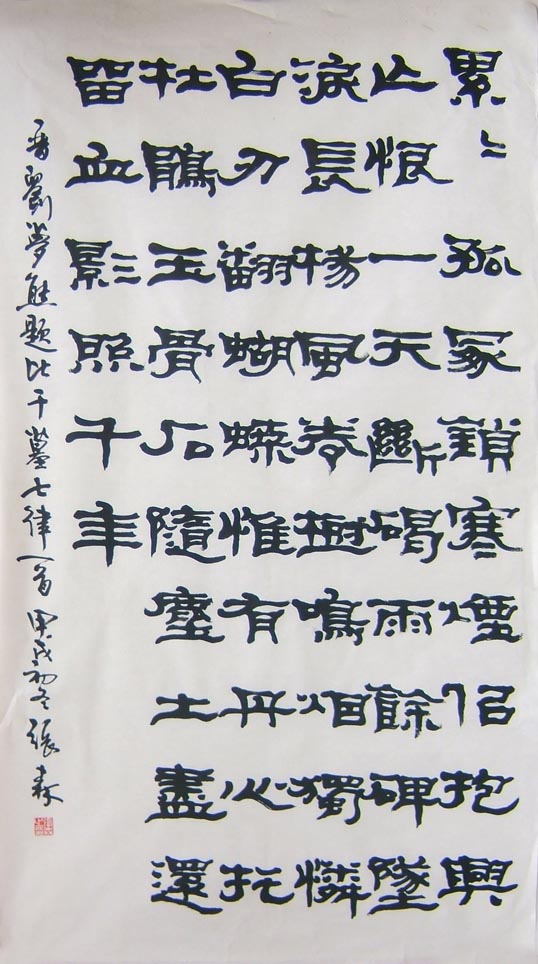 累〻孤冢鎖寒煙但抱興
亡恨一天斷碣雨餘碑墜
淚長楊風卷樹鳴烟獨憐
白刃翻蝴蝶惟有丹心托
杜鵑玉骨不隨塵土盡還
留血影照千年
劉夢熊題比干墓七律一首 甲戌初冬張森